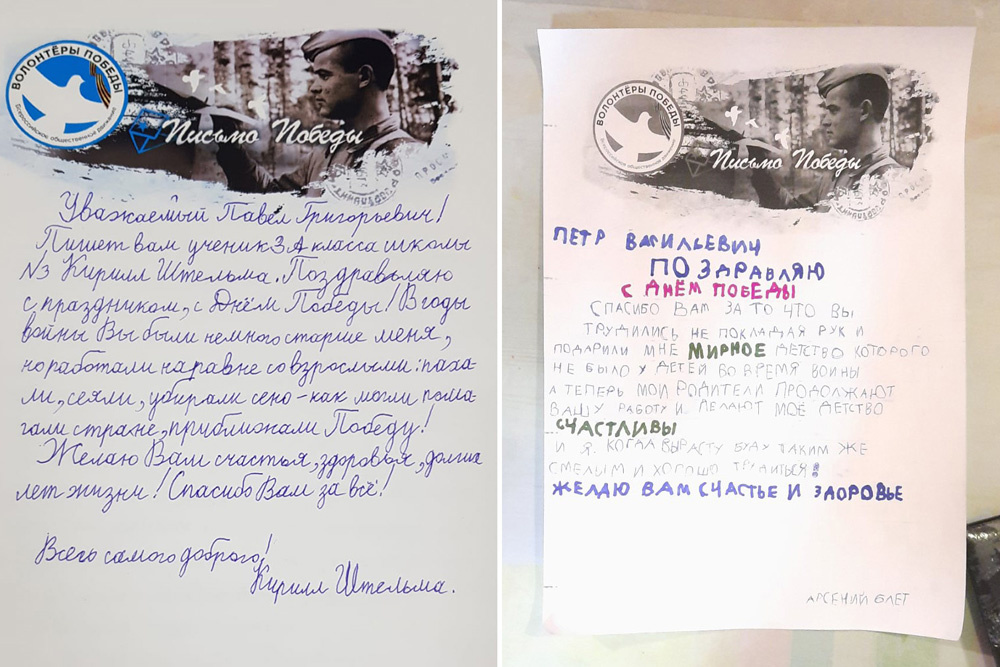 ВОЛОНТЁРЫ ПОБЕДЫ
Всероссийское общественное движение
Письмо Победы
Уважаемый Павел Григорьевич!
Пишет вам ученик 3 А класса школы
№3 Кирилл Штельма. Поздравляю
с праздником, с Днём Победы! В годы
войны Вы были немного старше меня,
но работали наравне со взрослыми: паха-
ли, сеяли, убирали сено - как могли пома-
гали стране, приближали Победу!
Желаю Вам счастья, здоровья, долгих
лет жизни! Спасибо Вам за всё!
Всего самого доброго!
Кирилл Штельма.
ВОЛОНТЁРЫ ПОБЕДЫ
Письмо Победы
ПЕТР ВАСИЛЬЕВИЧ
ПОЗДРАВЛЯЮ
С ДНЁМ ПОБЕДЫ
СПАСИБО ВАМ ЗА ТО ЧТО ВЫ
ТРУДИЛИСЬ НЕ ПОКЛАДАЯ РУК И
ПОДАРИЛИ МНЕ МИРНОЕ ДЕТСТВО КОТОРОГО
НЕ БЫЛО У ДЕТЕЙ ВО ВРЕМЯ ВОЙНЫ
А ТЕПЕРЬ МОИ РОДИТЕЛИ ПРОДОЛЖАЮТ
ВАШУ РАБОТУ И ДЕЛАЮТ МОЁ ДЕТСТВО
СЧАСТЛИВЫ
И Я. КОГДА ВЫРАСТУ БУДУ ТАКИМ ЖЕ
СМЕЛЫМ И ХОРОШО ТРУДИТЬСЯ!
ЖЕЛАЮ ВАМ СЧАСТЬЕ И ЗДОРОВЬЕ
АРСЕНИЙ БЛЕТ